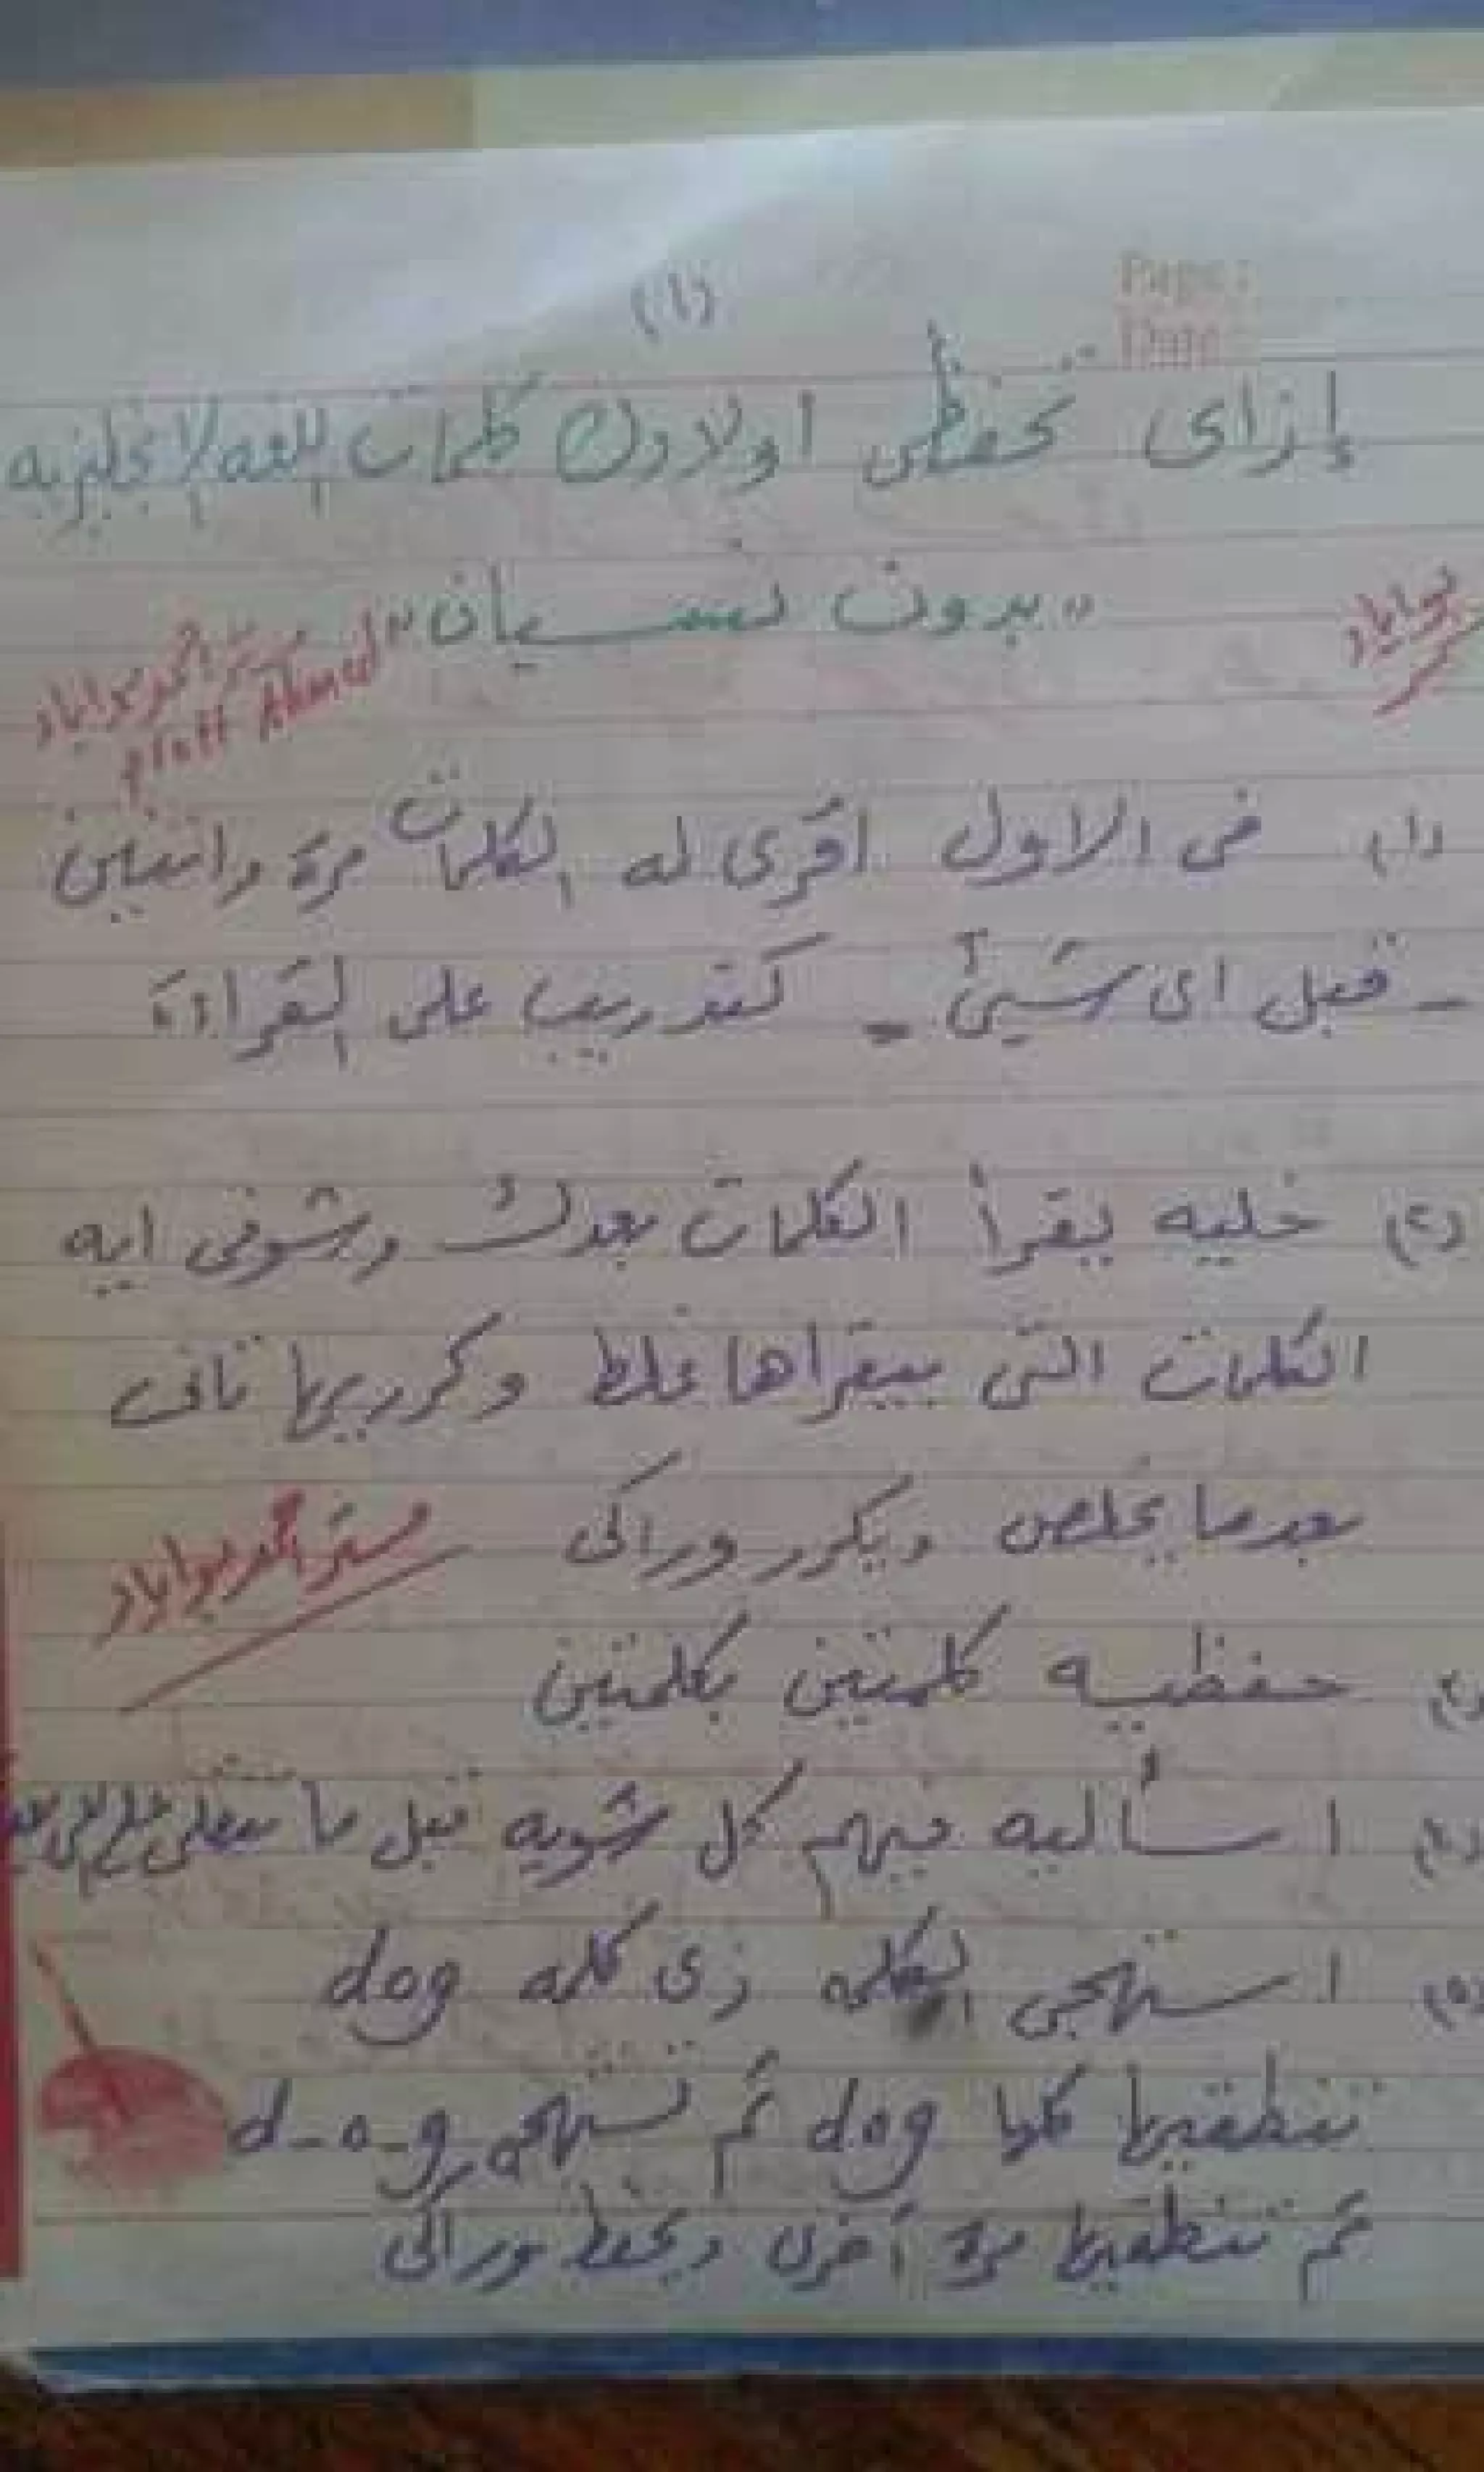 (١)
Page:
Date:
إزاى تحفظى اولادك كلمات اللغه الإنجليزيه
"بدون نسيان"
بوابيار
مستر احمد بوابيار
Ahmed
(١) فى الاول اقرى له الكلمات مرة واتنين
- قبل اى شيئ - كتدريب على القراءة
(٢) خليه يقرأ الكلمات بعدك وشوفى ايه
الكلمات التى بيقراها غلط وكرريها تانى
بعد ما يخلص ويكرر وراكى
مستر احمد بوابيار
(٣) حفظيه كلمتين بكلمتين
(٤) اسأليه فيهم كل شويه قبل ما تنقلى على اللى بعد
(٥) استهجى الكلمه زى كلمه dog
تنطقيها كلها dog ثم تستهجى d-o-g
ثم تنطقيها مرة أخرى ويحفظ وراكى